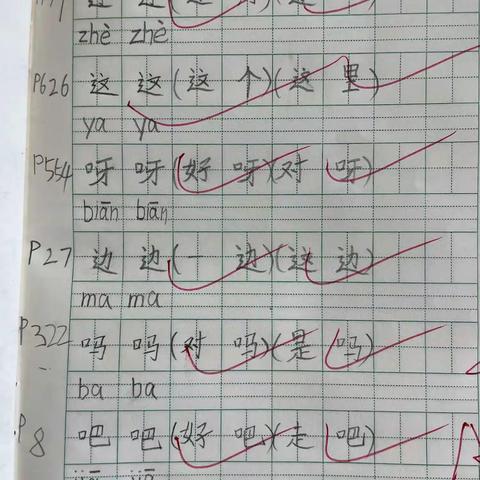 zhè zhè
P626 这 这(这 个)(这 里)
ya ya
P554 呀 呀(好 呀)(对 呀)
biān biān
P27 边 边(一 边)(这 边)
ma ma
P322 吗 吗(对 吗)(是 吗)
ba ba
P8 吧 吧(好 吧)(走 吧)